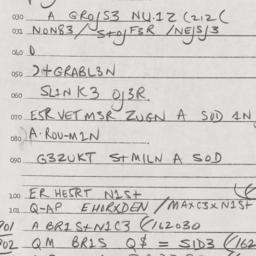 030 A GROJS3 NU.1Z (212(
031 NON83/ STOJF3R /NEJSJ3
040 D
050 )+GRABL3N
060 SL1NK3 OJ3R
070 ESRVETM3R ZUGN A SOD 1N
080 A.ROU-M1N
090 G3ZUKT S+M1LN A SOD
100 ER HESRT N1S+
101 Q-AP EHORXDEN /MAXC3XN1S+
901 A BR1S+N1C3 (/162030
902 QM BR1S Q$ = S1D3 (/162